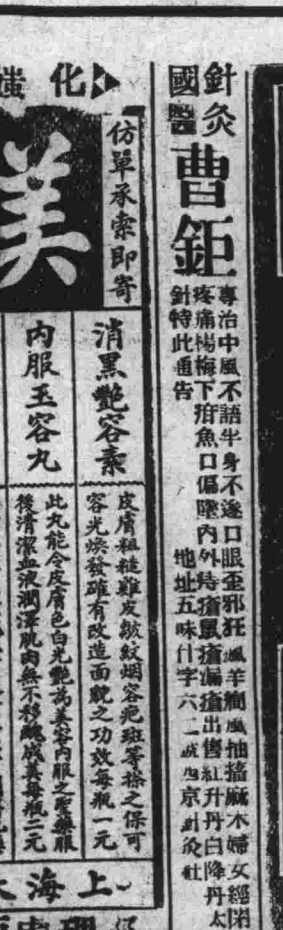 針灸
國醫
曹鉅
專治中風不語半身不遂口眼歪邪狂風羊癎風抽搐麻木婦女經閉
疼痛楊梅下疳魚口偏墜內外痔瘡鼠瘡漏瘡出售紅升丹白降丹太
針特此通告
地址五味什字六二號西京針灸社
化
仿單承索即寄
美
消黑艷容素
皮膚粗糙雞皮皺紋烟容疤斑等搽之保可
容光煥發確有改造面貌之功效每瓶一元
內服玉容丸
此丸能令皮膚色白光艷為美容內服之聖藥服
後清潔血液潤澤肌肉無不移醜成美每瓶二元
上海